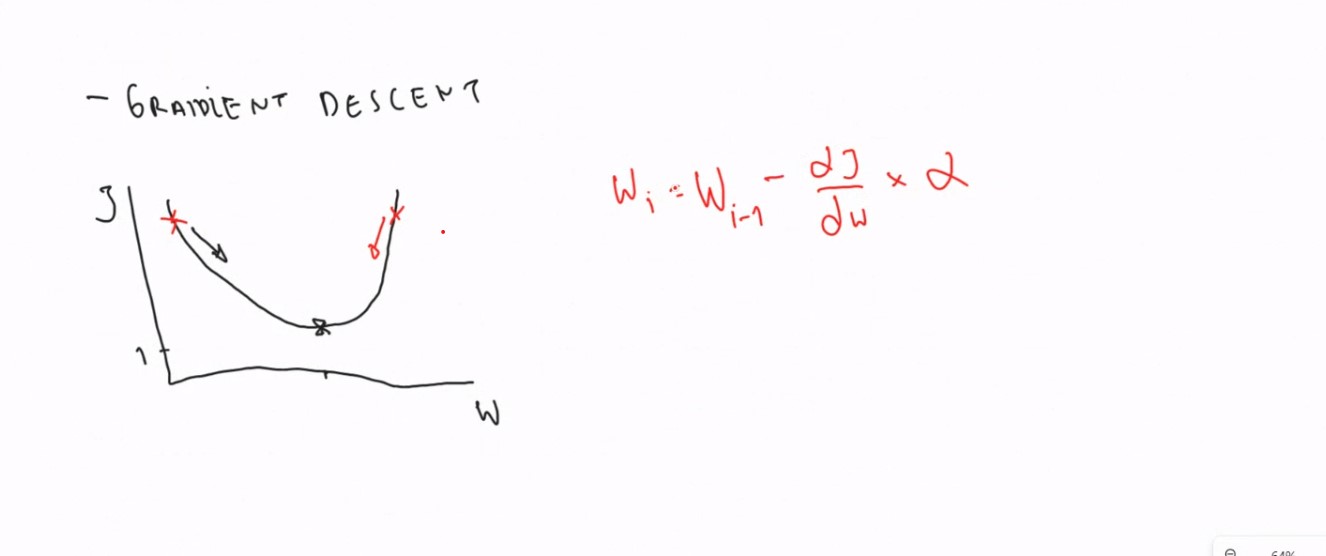 - GRADIENT DESCENT
J
1
W
W i = W i-1 - dJ/dw × α
64%